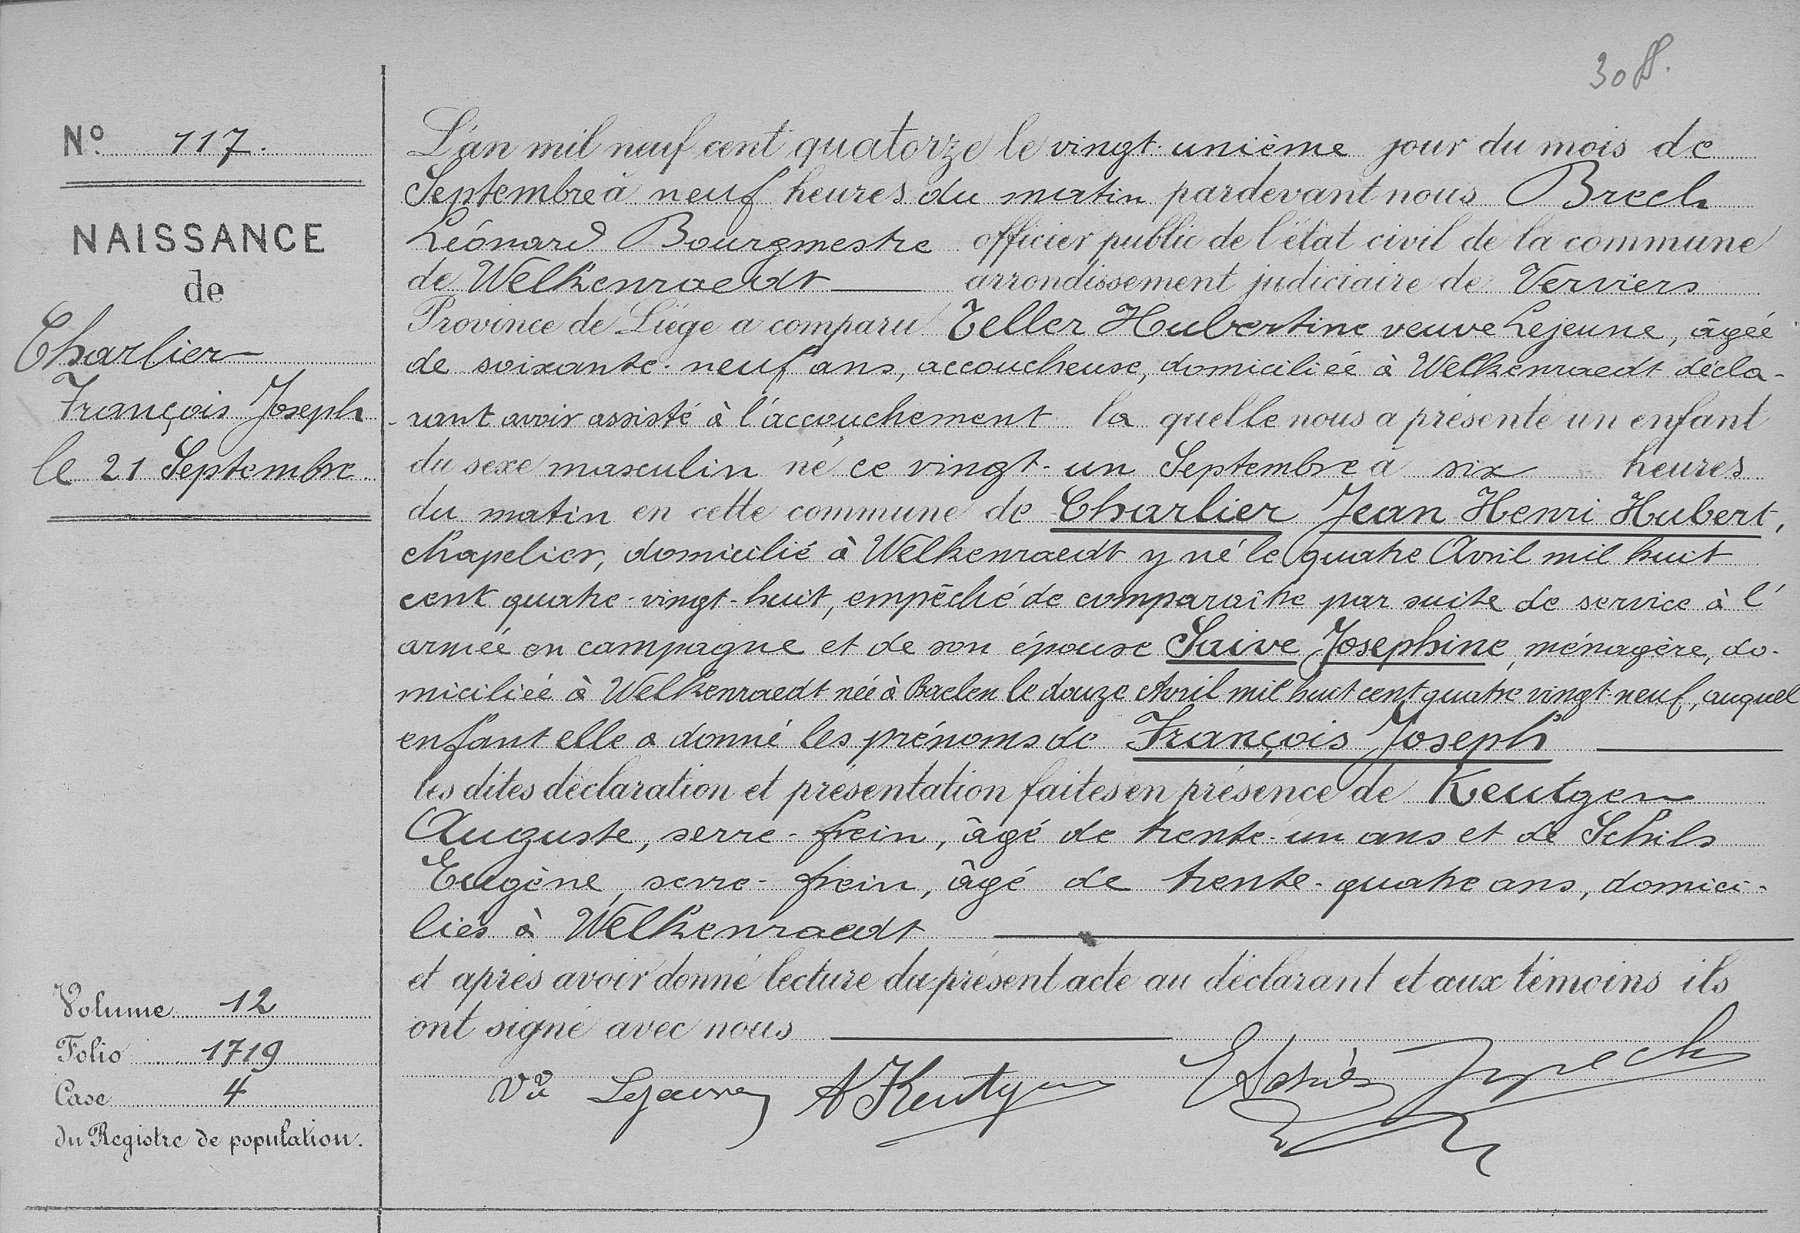 Nº 117.
NAISSANCE
de
Charlier
François Joseph
le 21 Septembre
L'an mil neuf cent quatorze le vingt-unième jour du mois de
Septembre à neuf heures du matin pardevant nous Brech
Léonard Bourgmestre officier public de l'état civil de la commune
de Welkenraedt arrondissement judiciaire de Verviers
Province de Liége a comparu Teller Hubertine veuve Lejeune, âgée
de soixante-neuf ans, accoucheuse, domiciliée à Welkenraedt décla-
rant avoir assisté à l'accouchement la quelle nous a présenté un enfant
du sexe masculin né ce vingt-un Septembre à six heures
du matin en cette commune de Charlier Jean Henri Hubert,
chapelier, domicilié à Welkenraedt y né le quatre Avril mil huit
cent quatre-vingt-huit, empêché de comparaître par suite de service à l'
armée en campagne et de son épouse Saive Josephine, ménagère, do-
miciliée à Welkenraedt née à Baelen le douze Avril mil huit cent quatre vingt-neuf, auquel
enfant elle a donné les prénoms de François Joseph
les dites déclaration et présentation faites en présence de Keutgen
Auguste, serre-frein, âgé de trente-un ans et de Schils
Eugène, serre-frein, âgé de trente-quatre ans, domici-
liés à Welkenraedt
et après avoir donné lecture du présent acte au déclarant et aux témoins ils
ont signé avec nous
Vve Lejeune A Keutgen E Schils Brech
Volume 12
Folio 1719
Case 4
du Registre de population.